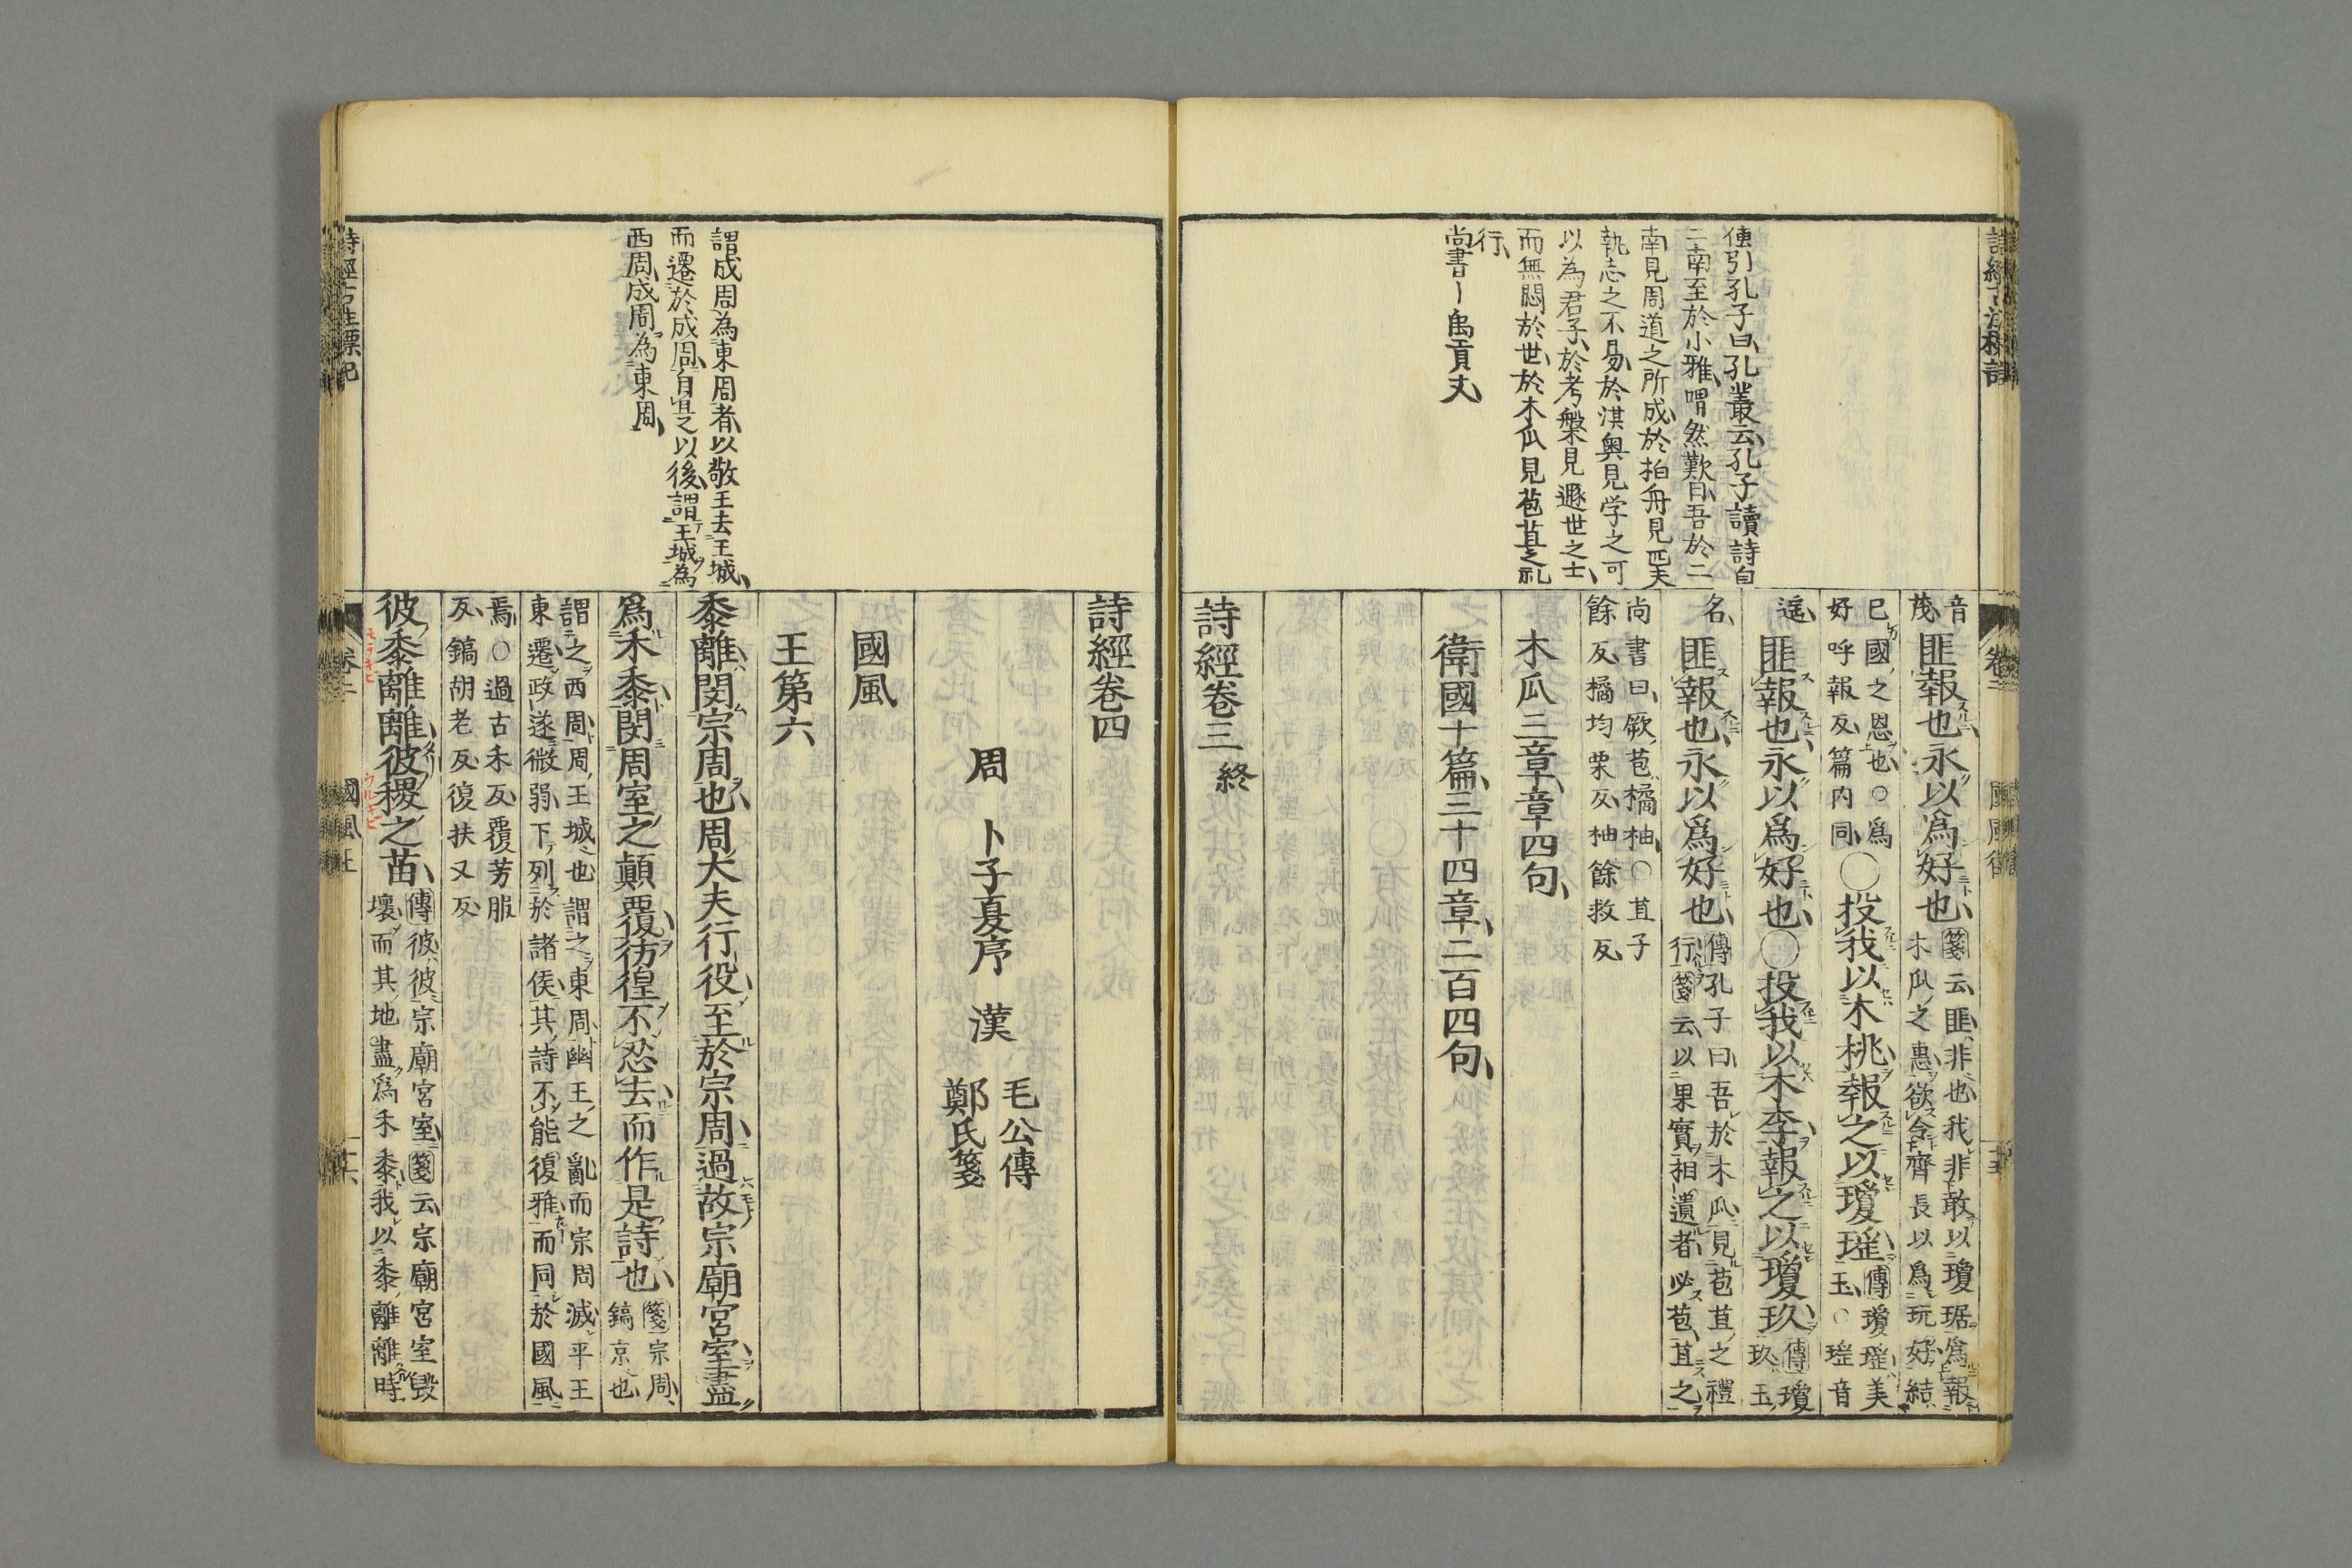 傳引孔子曰孔叢云孔子讀詩自
二南至於小雅喟然歎曰吾於二
南見周道之所成於柏舟見匹夫
執志之不易於淇奥見学之可
以為君子於考槃見遯世之士
而無悶於世於木瓜見苞苴之礼
行
尚書ー禹貢文
音
茂匪報也永以爲好也箋云匪非也我非敢以瓊琚爲報
木瓜之惠欲令齊長以爲玩好結
已國之恩也○爲
好呼報反篇内同○投我以木桃報之以瓊瑤傳瓊瑤美
玉○瑤音
遙匪報也永以爲好也○投我以木李報之以瓊玖傳瓊
玖玉
名匪報也永以爲好也傳孔子曰吾於木瓜見苞苴之禮
行箋云以果實相遺者必苞苴之
尚書曰厥苞橘柚○苴子
餘反橘均栗反柚餘救反
木瓜三章章四句
衛國十篇三十四章二百四句
詩經卷三終
謂成周為東周者以敬王去王城
而遷於成周自是以後謂王城為
西周成周為東周
詩經卷四
周 卜子夏序 漢 毛公傳
鄭氏箋
國風
王第六
黍離閔宗周也周大夫行役至於宗周過故宗廟宮室盡
爲禾黍閔周室之顛覆彷徨不忍去而作是詩也箋宗周
鎬京也
謂之西周周王城也謂之東周幽王之亂而宗周滅平王
東遷政遂微弱下列於諸侯其詩不能復雅而同於國風
焉○過古禾反覆芳服
反鎬胡老反復扶又反
彼黍離離彼稷之苗傳彼彼宗廟宮室箋云宗廟宮室毀
壞而其地盡爲禾黍我以黍離離時
國風王